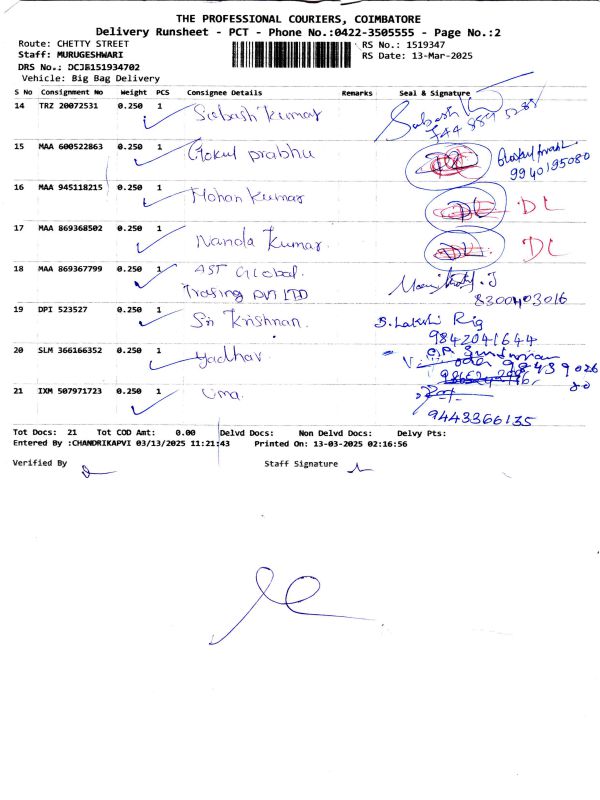 THE PROFESSIONAL COURIERS, COIMBATORE
Delivery Runsheet - PCT - Phone No.:0422-3505555 - Page No.:2
Route: CHETTY STREET
RS No.: 1519347
Staff: MURUGESHWARI
RS Date: 13-Mar-2025
DRS No.: DCJE151934702
Vehicle: Big Bag Delivery
S No Consignment No Weight PCS Consignee Details Remarks Seal & Signature
14 TRZ 20072531 0.250 1 Subash Kumar Subash
15 MAA 600522863 0.250 1 Gokul prabhu
9940195080
16 MAA 945118215 0.250 1 Mohan Kumar DL
17 MAA 869368502 0.250 1 Nanda Kumar. DL
18 MAA 869367799 0.250 1 AST Global.
Trading Pvt LTD 8300403016
19 DPI 523527 0.250 1 Sri Krishnan. B. Lakshi
9842041644
20 SLM 366166352 0.250 1 yadhav.
21 IXM 507971723 0.250 1 Uma.
9443366135
Tot Docs: 21 Tot COD Amt: 0.00 Delvd Docs: Non Delvd Docs: Delvy Pts:
Entered By :CHANDRIKAPVI 03/13/2025 11:21:43 Printed On: 13-03-2025 02:16:56
Verified By Staff Signature